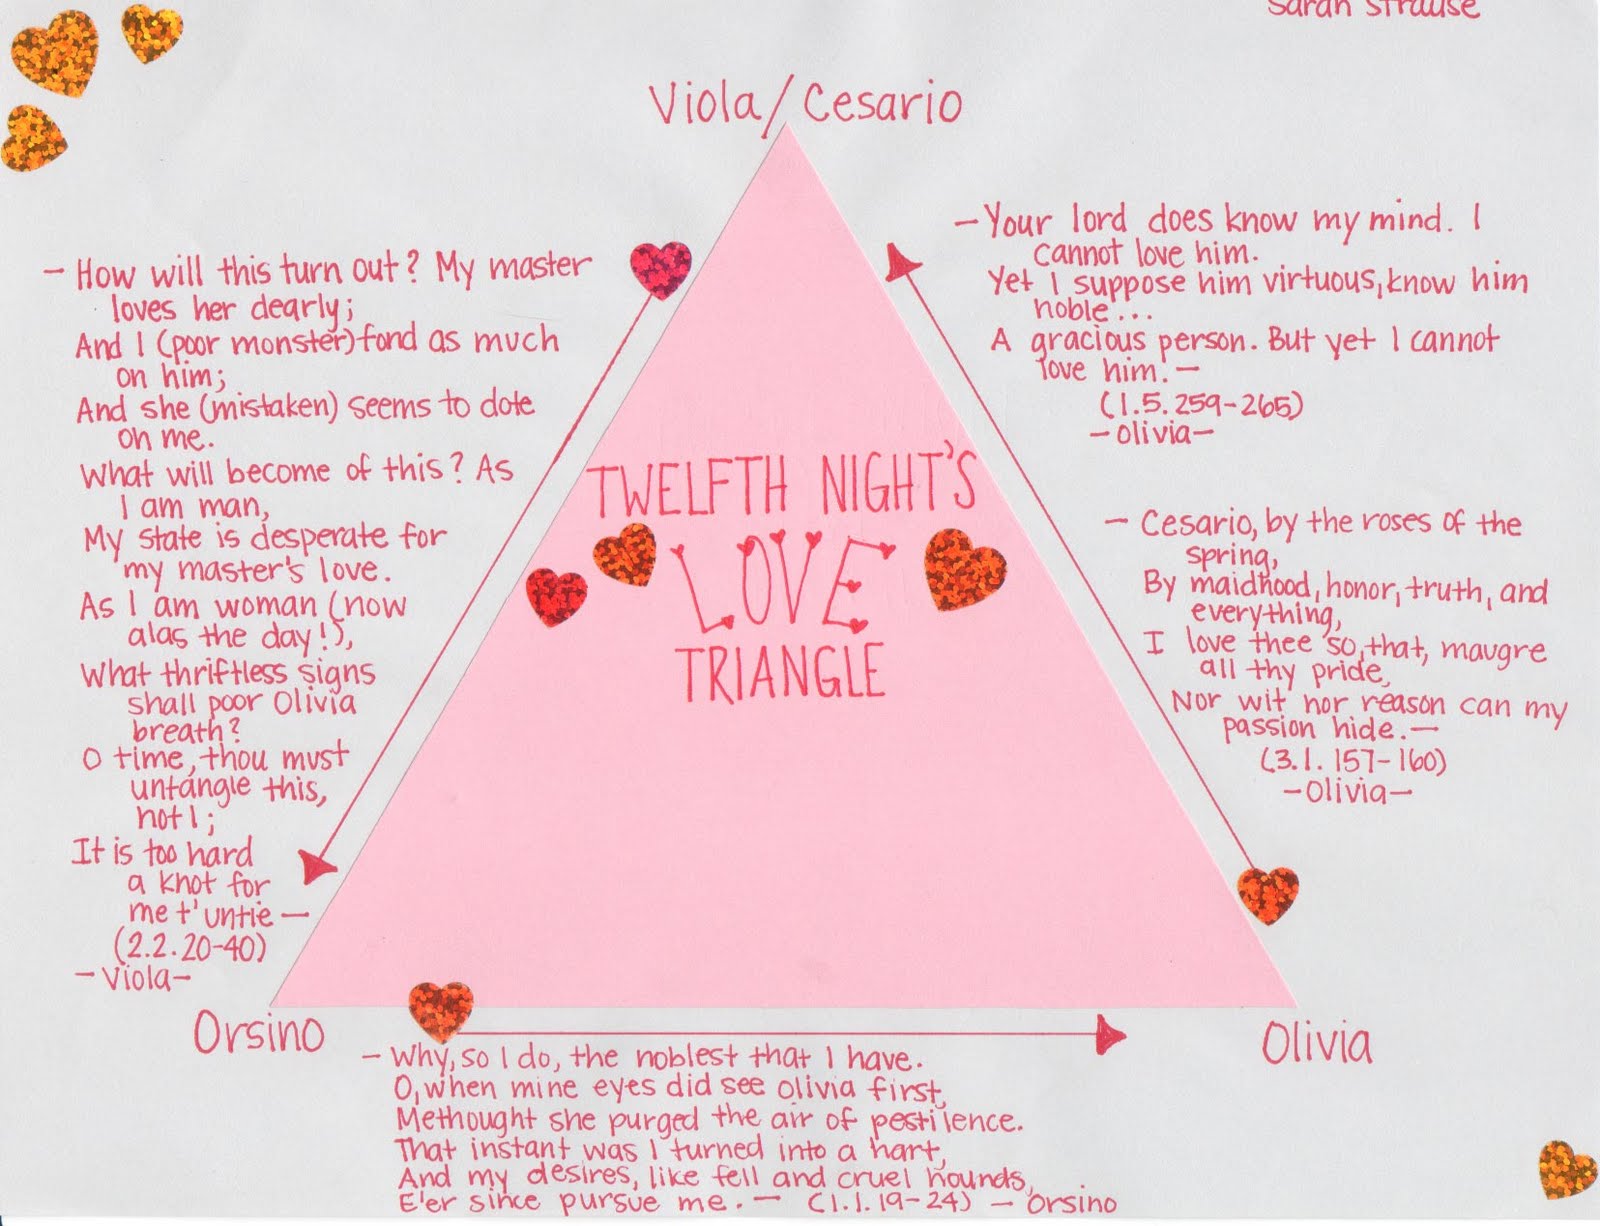 Sarah Strause
Viola/Cesario
- How will this turn out? My master
loves her dearly;
And I (poor monster) fond as much
on him;
And she (mistaken) seems to dote
on me.
What will become of this? As
I am man,
My state is desperate for
my master's love.
As I am woman (now
alas the day!),
What thriftless signs
shall poor Olivia
breath?
O time, thou must
untangle this,
not I;
It is too hard
a knot for
me t'untie —
(2.2.20-40)
- Viola -
- Your lord does know my mind. I
cannot love him.
Yet I suppose him virtuous, know him
noble...
A gracious person. But yet I cannot
love him. —
(1.5.259-265)
- Olivia -
- Cesario, by the roses of the
spring,
By maidhood, honor, truth, and
everything,
I love thee so, that, maugre
all thy pride,
Nor wit nor reason can my
passion hide. —
(3.1.157-160)
- Olivia -
TWELFTH NIGHT'S
LOVE
TRIANGLE
Orsino
Olivia
- Why, so I do, the noblest that I have.
O, when mine eyes did see Olivia first,
Methought she purged the air of pestilence.
That instant was I turned into a hart,
And my desires, like fell and cruel hounds,
E'er since pursue me. — (1.1.19-24) - Orsino